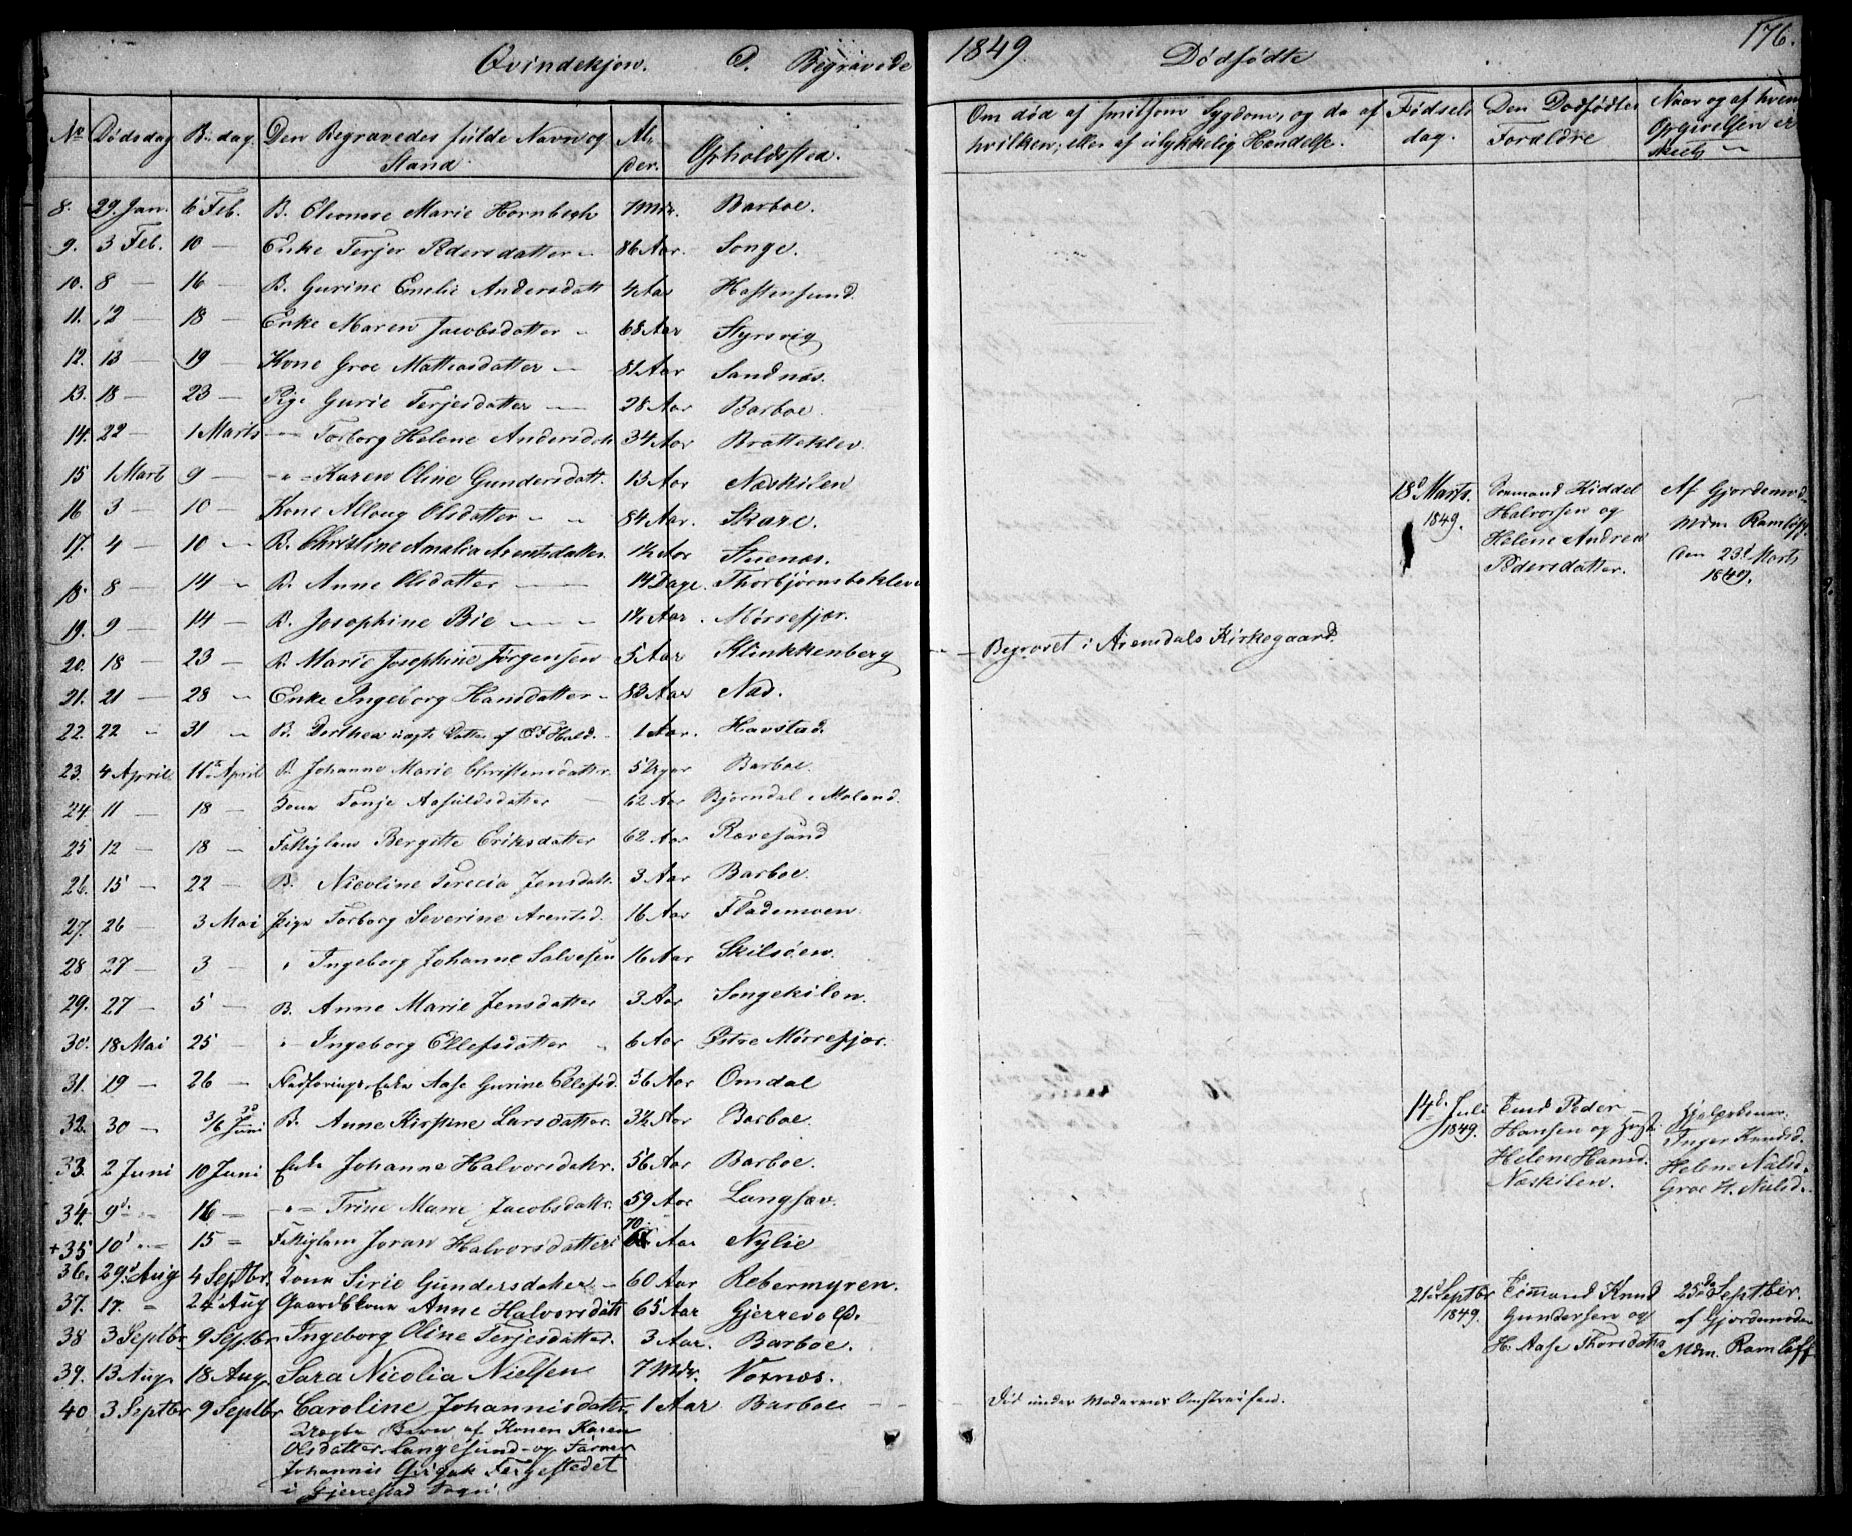 Qvindekjøn. D. Begravede 1849. Dødfødte 176.
No Dødsdag B. dag. Den Begravedes fulde Navn og Stand. Alder. Opholdsted.
Om død af smitsom Sygdom, og da af hvilken; eller af ulykkelig Hændelse. Fødsels dag. Den Dødfødtes Forældre Naar og af hvem Opgivelsen er skeet
8. 29 Jan. 6 Feb. B. Marie Hornbech 7 Mdr. Barboe.
9. 3 Feb. 10 — Enke Terjer Pedersdatter 86 Aar. Songe.
10. 8 — 16 — B. Gurine Emelie Andersdatt 4 Aar Hastensund.
11. 12 — 18 — Enke Maren Jacobsdatter 68 Aar Styrsvig
12. 13 — 19 — Kone Groe Mathiasdatter — 81 Aar Sandnæs.
13. 18 — 23 — Pige Gurie Terjesdatter — 28 Aar Barboe.
14. 22 — 1 Marts — Torborg Helene Andersdatt 34 Aar Bratteklev.
15 1 Mart 9 — — " — Karen Oline Gundersdatt. 13 Aar Næskilen
16 3 — 10 — Kone Alloug Olsdatter 84 Aar. Skare.
17. 4 — 10 — B. Christine Amalia Arentsdatter 1½ Aar Stuenæs.
18. 8 — 14 — B. Anne Olsdatter — 14 Dage. Thorbjørnsbeklev
19. 9 — 14 — B. Josephine Bie — 1½ Aar. Mørrefjær.
20. 18 — 23 — B. Marie Josephine Jørgensen 5 Aar Klinkkenberg — Begravet i Arendals Kirkegaard.
21. 21 — 28 — Enke Ingeborg Hansdatter 83 Aar Næs.
22. 22 — 31 — B. Dorthea uægte Datter af Hald. 1 Aar. Havstad.
23. 4 April 11 April B. Johanne Marie Christensdatter. 5 Uger Barboe.
24. 11 — 18 — Kone Tonje Asfuldsdatter 62 Aar Bjørndal i Moland.
25 12 — 18 — Fattiglem Bergitte Eriksdatter 62 Aar Rævesund
26. 15 — 22 — B. Nicoline Terecia Jensdatt. 3 Aar Barboe.
27. 26 — 3 Mai Pige Torborg Severine Arentsd. 16 Aar Flademoen.
28 27 — 3 — " Ingeborg Johanne Salvesen 16 Aar Skilsöen.
29. 27 — 5 — B. Anne Marie Jensdatter 3 Aar Songekilen.
30. 18 Mai 25 — " Ingeborg Ellefsdatter 6 Aar Østre Mørrefjær.
31. 19 — 26 — Enke Aase Gurine Ellefsd. 56 Aar Omdal
32. 30 — 3/6 Juni B. Anne Kirstine Larsdatter. 3½ Aar Barboe.
33. 2 Juni 10 Juni Enke Johanne Halvorsdatter. 56 Aar Barboe.
34. 9d — 16 — — " — Trine Marie Jacobsdatter. 59 Aar Langsæv.
+35 10d — 15 — Fattiglem Joran Halvorsdatter 70 Aar Nylie
36. 29d Aug 4 Septbr. Kone Sirie Gundersdatter — 60 Aar Rebermyren.
37. 17. " 24 Aug Gaardbkone Anne Halvorsdatt 65 Aar Gjerrevold.
38 3 Septbr 9 Septbr. Ingeborg Oline Terjesdatter. 3 Aar. Barboe.
39. 13 Aug. 18 Aug. Sara Nicolia Nielsen 7 Mdr. Voxnæs.
40 3 Septbr 9 Septbr Caroline Johannisdatter 1 Aar Barboe — Død under Moderens
Uægte Barn af Konen Karen
Olsdatter Langesund og Farver
Johannis Fergestedet
i Gjerrestad Sogn.
18d Marts 1849. Sømand Kiddel
Halvorsen og
Helene Andrea
Pedersdatter.
Af Gjordemod.
Mdm Ramløff
den 23d Marts
1849.
14d Juli 1849. Peder
Hansen og Hust.
Helene Hansd.
Næskilen.
Hjelperkoner
Inger Knudsd.
Helene Nilsd.
Groe H. Nilsd.
21d Septbr 1849. Sömand Knud
Gundersen og
H. Aase Thorsdatter
25de Septber.
af Gjordemoder
Mdm. Ramløff